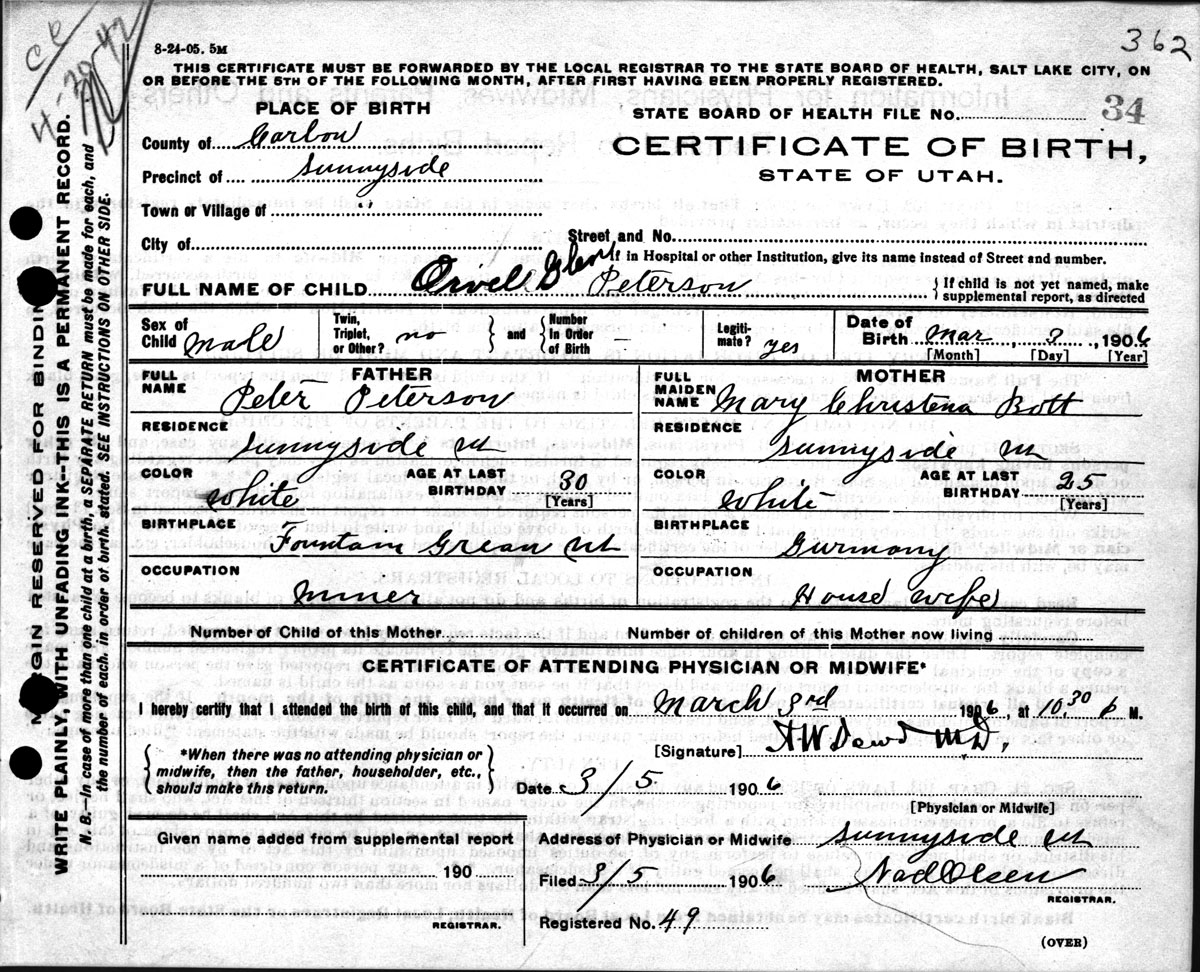 362
8-24-05. 5M
THIS CERTIFICATE MUST BE FORWARDED BY THE LOCAL REGISTRAR TO THE STATE BOARD OF HEALTH, SALT LAKE CITY, ON
OR BEFORE THE 5TH OF THE FOLLOWING MONTH, AFTER FIRST HAVING BEEN PROPERLY REGISTERED.
PLACE OF BIRTH
STATE BOARD OF HEALTH FILE No. 34
County of Carbon
CERTIFICATE OF BIRTH,
Precinct of Sunnyside
STATE OF UTAH.
Town or Village of "
City of
Street and No.
If in Hospital or other Institution, give its name instead of Street and number.
FULL NAME OF CHILD Orvell Glen Peterson
{ If child is not yet named, make
supplemental report, as directed
Sex of Child Male
Twin, Triplet, or Other? no } and { Number In Order of Birth –
Legiti- mate? yes
Date of Birth Mar 3, 1906
[Month] [Day] [Year]
FATHER
FULL NAME Peter Peterson
RESIDENCE
Sunnyside Ut
COLOR White
AGE AT LAST BIRTHDAY 30
[Years]
BIRTHPLACE
Fountain Grean Ut
OCCUPATION
Miner
MOTHER
FULL MAIDEN NAME Mary Christena Bott
RESIDENCE
Sunnyside Ut
COLOR White
AGE AT LAST BIRTHDAY 25
[Years]
BIRTHPLACE
Gurmany
OCCUPATION
House wife
Number of Child of this Mother
Number of children of this Mother now living
CERTIFICATE OF ATTENDING PHYSICIAN OR MIDWIFE*
I hereby certify that I attended the birth of this child, and that it occurred on March 3rd 1906, at 10.30 P M.
{ *When there was no attending physician or
midwife, then the father, householder, etc.,
should make this return. }
[Signature] A W Dowd MD,
Date 3/5 1906
[Physician or Midwife]
Given name added from supplemental report
190
REGISTRAR.
Address of Physician or Midwife Sunnyside Ut
Filed 3/5 1906
Nad Olsen
REGISTRAR.
Registered No. 49
(OVER)
MARGIN RESERVED FOR BINDING
WRITE PLAINLY, WITH UNFADING INK--THIS IS A PERMANENT RECORD.
B.--In case of more than one child at a birth, a SEPARATE RETURN must be made for each, and
the number of each, in order of birth, stated. SEE INSTRUCTIONS ON OTHER SIDE.